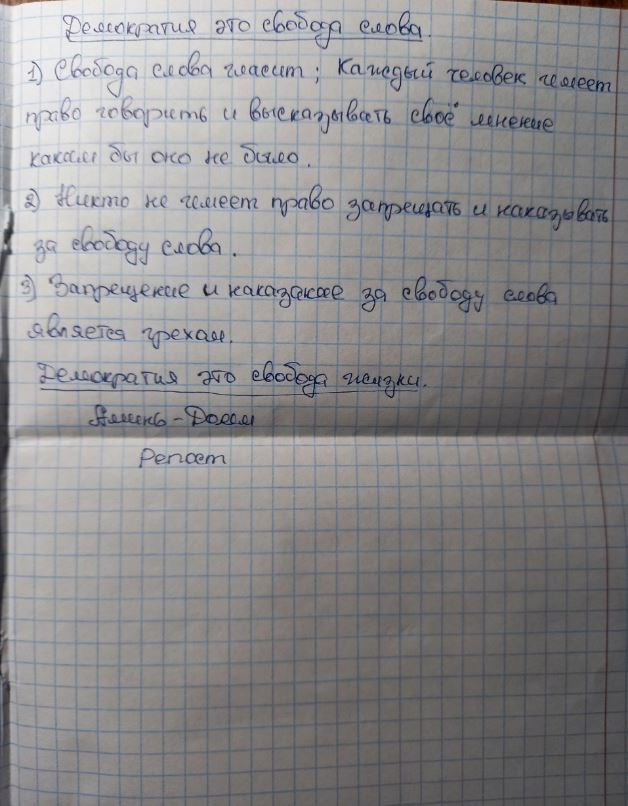 Демократия это свобода слова.
1) Свобода слова гласит; Каждый человек имеет
право говорить и высказывать своё мнение
каким бы оно не было.
2) Никто не имеет право запрещать и наказывать
за свободу слова.
3) Запрещение и наказание за свободу слова
является грехам.
Демократия это свобода жизни.
Аминь-Доам
Репост